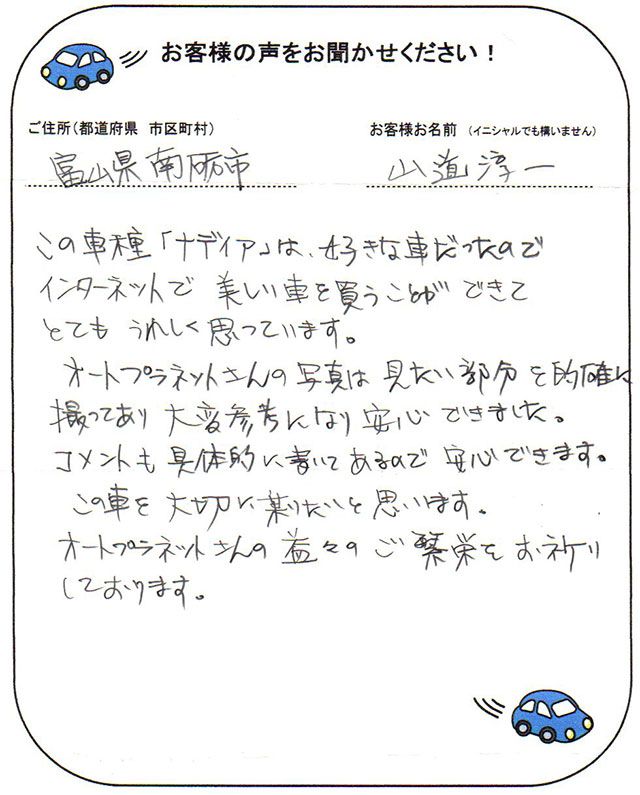 お客様の声をお聞かせください！
ご住所(都道府県 市区町村)
お客様お名前 (イニシャルでも構いません)
富山県南砺市
山道淳一
この車種「ナディア」は、好きな車だったので
インターネットで 美しい車を買うことが できて
とても うれしく思っています。
オートプラネットさんの写真は 見たい部分を的確に
撮ってあり 大変参考になり 安心できました。
コメントも具体的に書いてあるので 安心できます。
この車を大切に乗りたいと思います。
オートプラネットさんの益々のご繁栄をお祈り
しております。